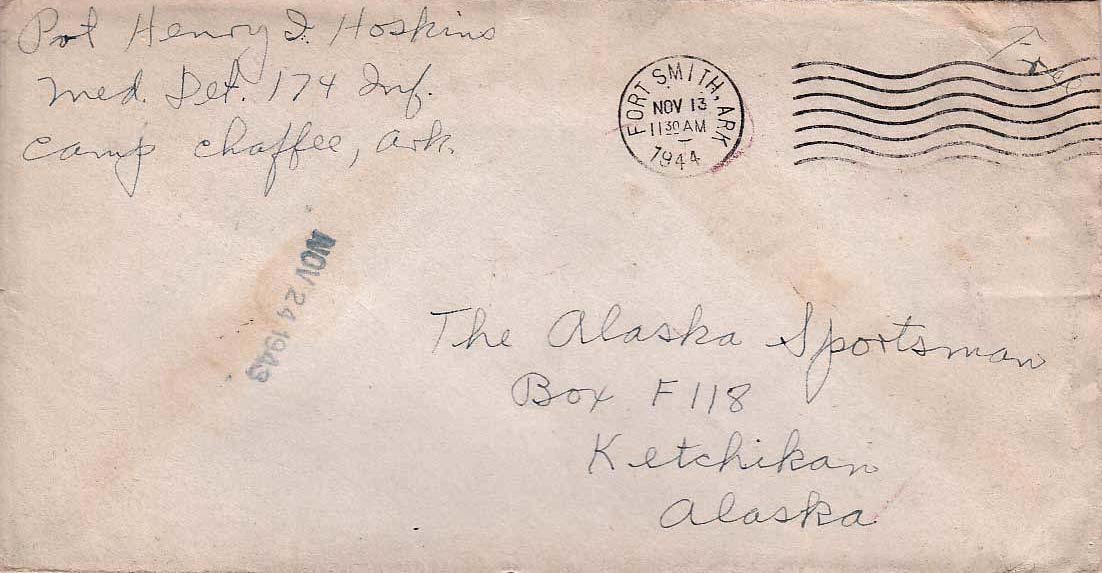 Pvt Henry I. Hoskins
Med. Det. 174 Inf.
Camp Chaffee, Ark.
Free
FORT SMITH, ARK
NOV 13
11 30 AM
1944
NOV 24 1943
The Alaska Sportsman
Box F 118
Ketchikan
Alaska